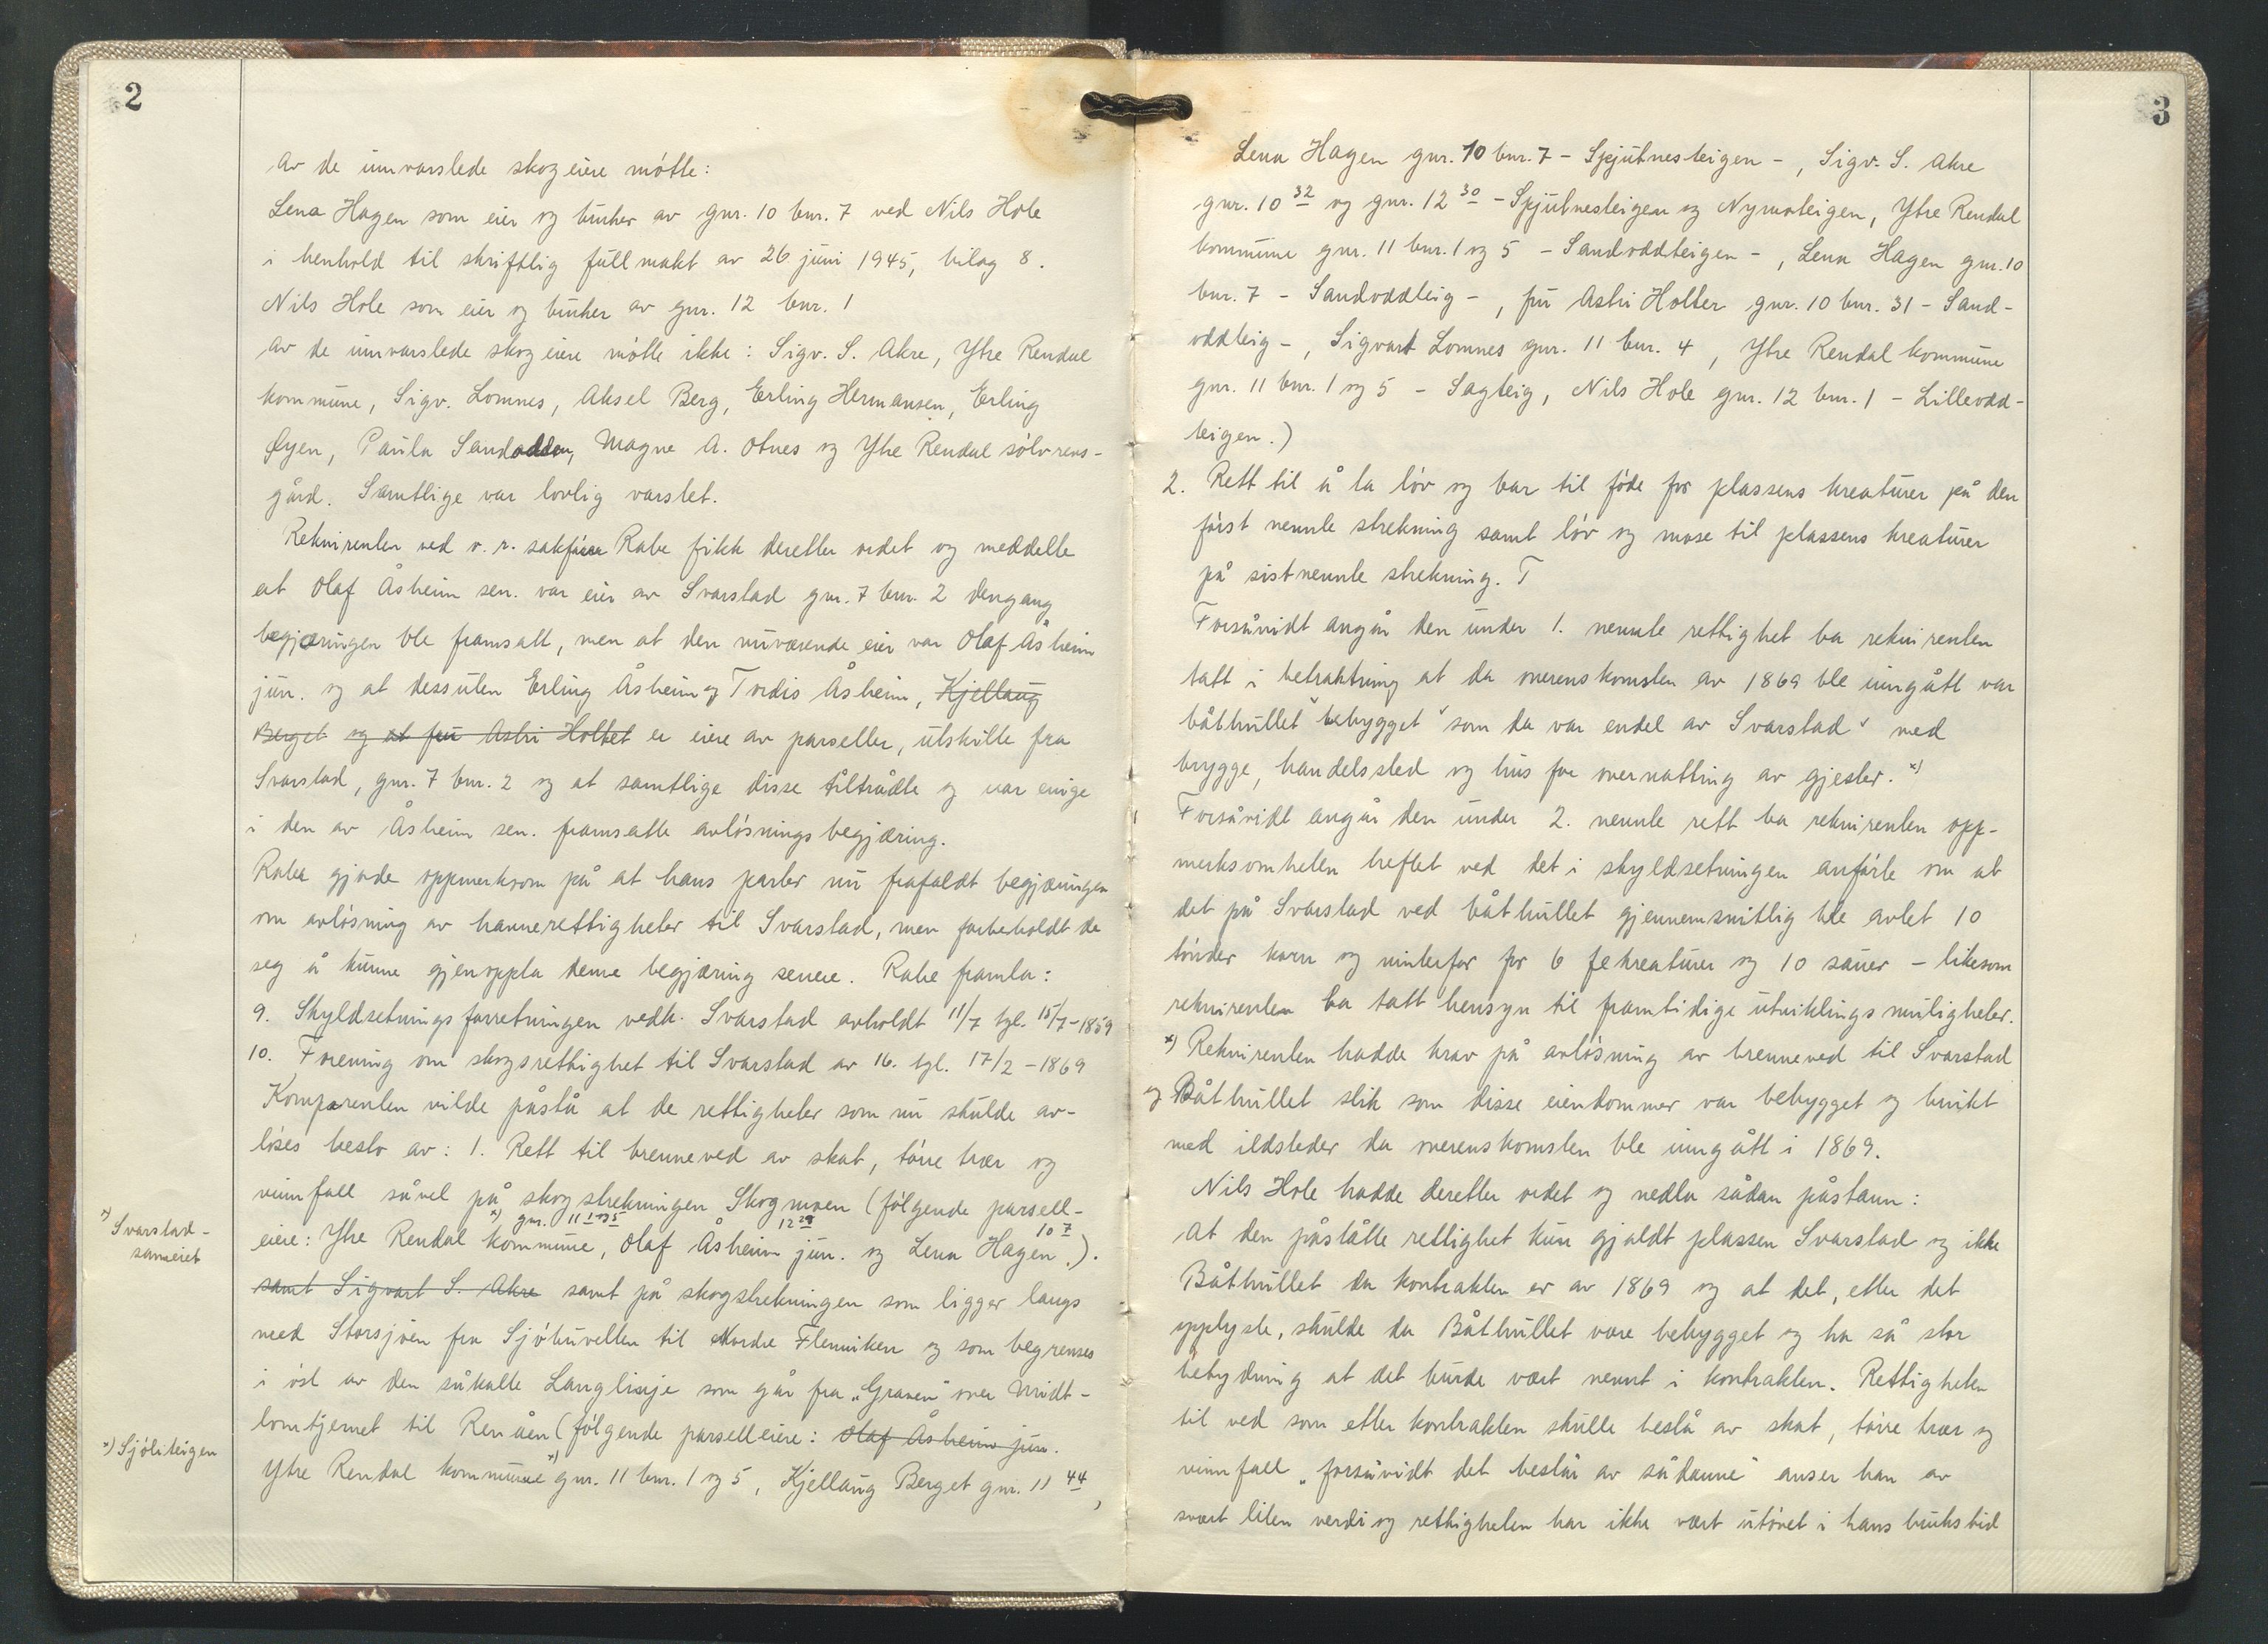 2
Av de innvarslede skogeiere møtte:
Lena Hagen som eier og bruker av gnr. 10 bnr. 7 ved Nils Hole
i henhold til skriftlig fullmakt av 26 juni 1945, bilag 8.
Nils Hole som eier og bruker av gnr. 12 bnr. 1
Av de innvarslede skogeiere møtte ikke: Sigv. S. Akre, Ytre Rendal
kommune, Sigv. Lomnes, Aksel Berg, Erling Hermansen, Erling
Øyen, Paula Sandodden, Magne A. Otnes og Ytre Rendal sølvrevs-
gård. Samtlige var lovlig varslet.
Rekvirenten ved o. r. sakfører Rabe fikk deretter ordet og meddelte
at Olaf Åsheim sen. var eier av Svarstad gnr. 7 bnr. 2 dengang
begjæringen ble framsatt, men at den nuværende eier var Olaf Åsheim
jun. og at dessuten Erling Åsheim og Tordis Åsheim, Kjellaug
Berget og at fru Astri Holtet er eiere av parseller, utskilte fra
Svarstad, gnr. 7 bnr. 2 og at samtlige disse tiltrådte og var enige
i den av Åsheim sen. framsatte avløsningsbegjæring.
Rabe gjorde oppmerksom på at hans parter nu frafaldt begjæringen
om avløsning av havnerettigheter til Svarstad, men forbeholdt de
seg å kunne gjenoppta denne begjæring senere. Rabe framla:
9. Skyldsetningsforretningen vedk. Svarstad avholdt 11/7 tgl. 15/7-1859
10. Forening om skogsrettighet til Svarstad av 16. tgl. 17/2-1869
Komparenten vilde påstå at de rettigheter som nu skulde av-
løses besto av: 1. Rett til brenneved av skat, tørre trær og
vinnfall såvel på skogstrekningen Skogmoen (følgende parsell-
x) gnr. 11 1 og 5 12 29 10 7
eiere: Ytre Rendal kommune, Olaf Åsheim jun. og Lena Hagen.).
x) Svarstad-
sameiet
samt Sigvart S. Akre samt på skogstrekningen som ligger langs
med Storsjøen fra Sjøtuvellen til Nordre Flenviken og som begrenses
i øst av den såkalte Langlinje som går fra „Graven" over Midt-
lomtjernet til Renåen (følgende parselleiere: Olaf Åsheim jun.
x) Sjøliteigen
Ytre Rendal kommune x) gnr. 11 bnr. 1 og 5, Kjellaug Berget gnr. 11 44,
3
Lena Hagen gnr. 10 bnr. 7 - Spjutnesteigen -, Sigv. S. Akre
gnr. 10 32 og gnr. 12 30 - Spjutnesteigen og Nymoteigen, Ytre Rendal
kommune gnr. 11 bnr. 1 og 5 - Sandoddteigen -, Lena Hagen gnr. 10
bnr. 7 - Sandoddteig -, fru Astri Holter gnr. 10 bnr. 31 - Sand-
oddteig -, Sigvart Lomnes gnr. 11 bnr. 4, Ytre Rendal kommune
gnr. 11 bnr. 1 og 5 - Sagteig, Nils Hole gnr. 12 bnr. 1 - Lilleodd-
teigen.)
2. Rett til å ta løv og bar til føde for plassens kreaturer på den
først nevnte strekning samt løv og mose til plassens kreaturer
på sistnevnte strekning. T
Forsåvidt angår den under 1. nevnte rettighet ba rekvirenten
tatt i betraktning at da overenskomsten av 1869 ble inngått var
båthullet bebygget som da var endel av Svarstad med
brygge, handelssted og hus for overnatting av gjester. x)
Forsåvidt angår den under 2. nevnte rett ba rekvirenten opp-
merksomheten heftet ved det i skyldsetningen anførte om at
det på Svarstad ved båthullet gjennemsnitlig ble avlet 10
tønder korn og vinterfor for 6 fekreaturer og 10 sauer - likesom
rekvirenten ba tatt hensyn til framtidige utviklingsmuligheter.
x) Rekvirenten hadde krav på avløsning av brenneved til Svarstad
og Båthullet slik som disse eiendommer var bebygget og brukt
med ildsteder da overenskomsten ble inngått i 1869.
Nils Hole hadde deretter ordet og nedla sådan påstann:
At den påståtte rettighet kun gjaldt plassen Svarstad og ikke
Båthullet da kontrakten er av 1869 og at det, etter det
opplyste, skulde da Båthullet være bebygget og ha så stor
betydning at det burde vært nevnt i kontrakten. Rettigheten
til ved som etter kontrakten skulle bestå av skat, tørre trær og
vinnfall „forsåvidt det består av sådanne" anser han av
svært liten verdi og rettigheten har ikke vært utøvet i hans brukstid